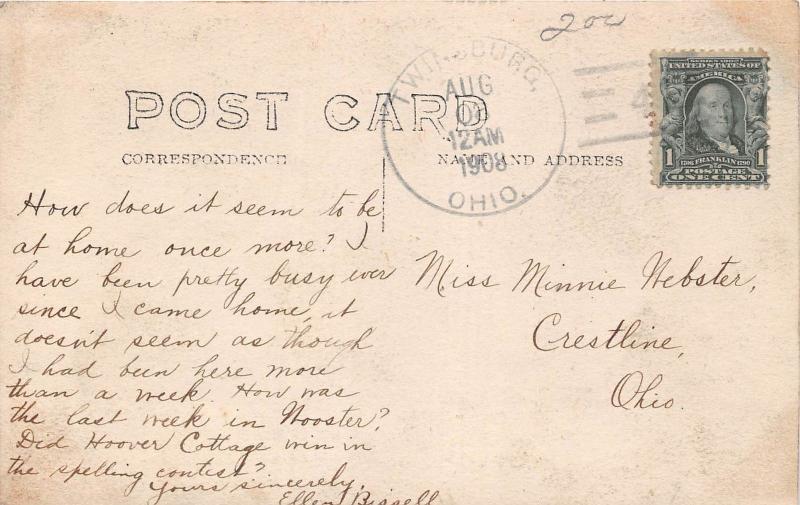 200
POST CARD
CORRESPONDENCE
NAME AND ADDRESS
TWINSBURG,
AUG
12AM
1908
OHIO.
4
SERIES 1902
UNITED STATES OF
AMERICA
1 1
1706 FRANKLIN 1790
POSTAGE
ONE CENT
How does it seem to be
at home once more? I
have been pretty busy ever
since I came home, it
doesn't seem as though
I had been here more
than a week. How was
the last week in Wooster?
Did Hoover Cottage win in
the spelling contest?
Yours sincerely,
Ellen Bissell
Miss Minnie Webster,
Crestline,
Ohio.